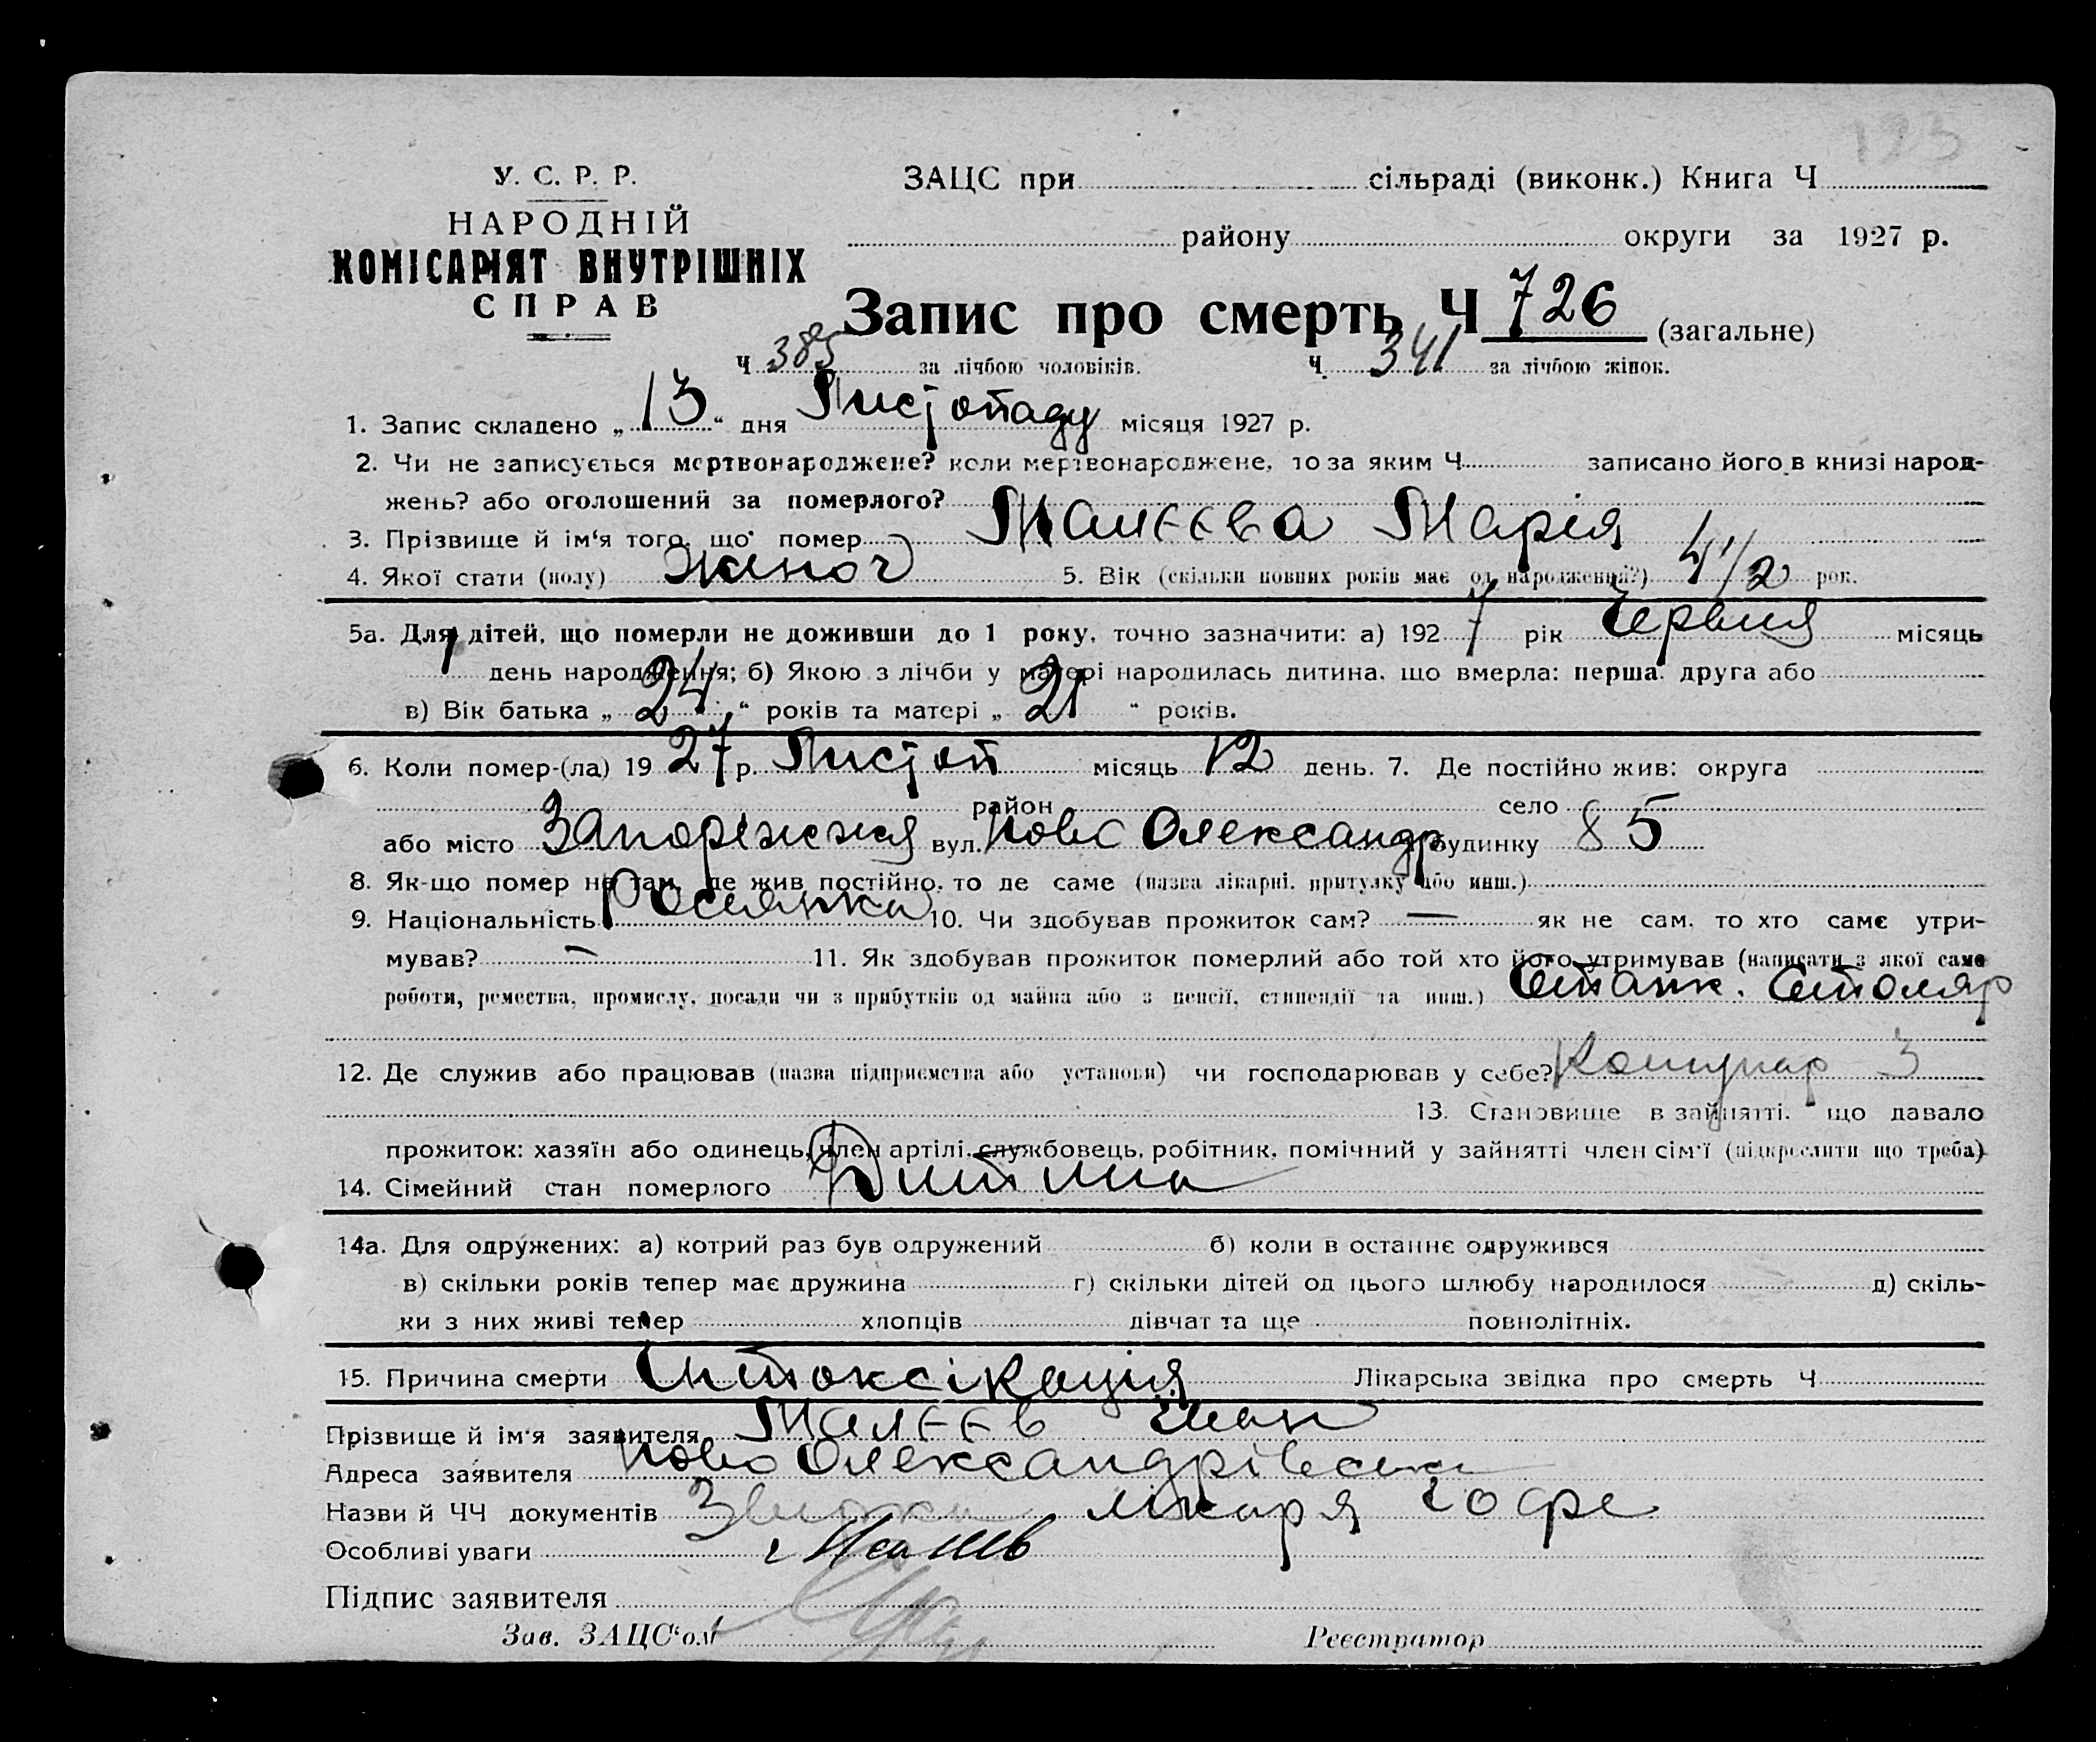 123
У. С. Р. Р.
НАРОДНІЙ
КОМІСАРІЯТ ВНУТРІШНІХ
СПРАВ
ЗАЦС при сільраді (виконк.) Книга Ч
району округи за 1927 р.
Запис про смерть Ч 726 (загальне)
Ч 385 за лічбою чоловіків. Ч. 341 за лічбою жінок.
1. Запис складено „ 13 “ дня Листопаду місяця 1927 р.
2. Чи не записується мертвонароджене? коли мертвонароджене, то за яким Ч записано його в книзі народ-
жень? або оголошений за померлого?
3. Прізвище й ім‘я того, що помер Малєєва Марія
4. Якої стати (полу) жіноч 5. Вік (скільки повних років має од народження?) 4 1/2 рок.
5а. Для дітей, що померли не доживши до 1 року, точно зазначити: а) 192 7 рік Червня місяць
1 день народження; б) Якою з лічби у матері народилась дитина, що вмерла: перша, друга або
в) Вік батька „ 24 “ років та матері „ 21 “ років.
6. Коли помер-(ла) 19 27 р. Листоп місяць 12 день. 7. Де постійно жив: округа
район село
або місто Запоріжжя вул. Ново Олександр будинку 85
8. Як-що помер не там, де жив постійно, то де саме (назва лікарні, притулку або инш.)
9. Національність Росіянка 10. Чи здобував прожиток сам? — як не сам, то хто саме утри-
мував? — 11. Як здобував прожиток померлий або той хто його утримував (написати з якої саме
роботи, ремества, промислу, посади чи з прибутків од майна або з пенсії, стипендії та инш.) Станк. Столяр
12. Де служив або працював (назва підприємства або установи) чи господарював у себе? Комунар З
13. Становище в зайнятті, що давало
прожиток: хазяїн або одинець, член артілі, службовець, робітник, помічний у зайнятті член сім‘ї (підкреслити що треба)
14. Сімейний стан померлого Дитина
14а. Для одружених: а) котрий раз був одружений б) коли в останнє одружився
в) скільки років тепер має дружина г) скільки дітей од цього шлюбу народилося д) скіль-
ки з них живі тепер хлопців дівчат та ще повнолітніх.
15. Причина смерти Інтоксікація Лікарська звідка про смерть Ч
Прізвище й ім‘я заявителя Малєєв Іван
Адреса заявителя Ново Олександрівська
Назви й ЧЧ документів лікаря Гофе
Особливі уваги
Підпис заявителя
Зав. ЗАЦС‘ом Реєстратор